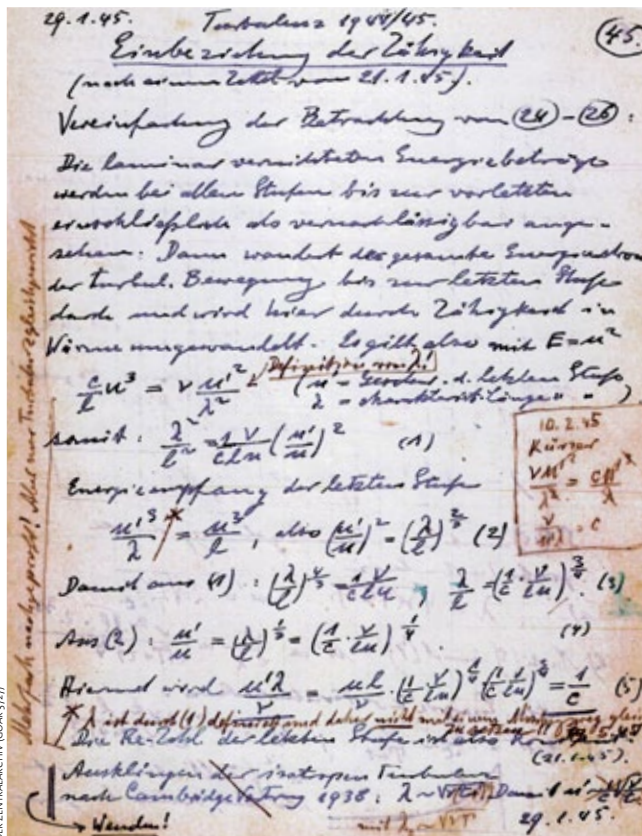 29.1.45. Turbulenz 1944/45. 45
Einbeziehung der Zähigkeit
(nach einem Zettel vom 21.1.45).
Vereinfachung der Betrachtung von (24) – (26) :
Die laminar vernichteten Energiebeträge
werden bei allen Stufen bis zur vorletzten
einschließlich als vernachlässigbar ange-
sehen. Dann wandert der gesamte Energiestrom
der turbul. Bewegung bis zur letzten Stufe
durch und wird hier durch Zähigkeit in
Wärme umgewandelt. Es gilt also mit E = u²
Definition von λ!
c/l u³ = ν u'²/λ² (u' = Geschw. d. letzten Stufe
λ = charakterist. Länge " " )
somit : λ²/l² = 1/c ν/lu (u'/u)² (1)
10.2.45
Kürzer
νu'²/λ² = c u'³/λ
ν/u'λ = c
Energieempfang der letzten Stufe
u'³/λ * = u³/l , also (u'/u)² = (λ/l)^2/3 (2)
Damit aus (1) : (λ/l)^4/3 = 1/c ν/lu , λ/l = (1/c · ν/lu)^3/4 (3)
Aus (2) : u'/u = (λ/l)^1/3 = (1/c · ν/lu)^1/4 (4)
Hiermit wird u'λ/ν = ul/ν · (1/c · ν/lu)^1/4 (1/c ν/lu)^3/4 = 1/c (5)
* λ ist durch (1) definiert und daher nicht mit einem
Die Re-Zahl der letzten Stufe ist also
(21.1.45).
Ausklingen der isotropen Turbulenz
nach Cambridge Vortrag 1938 : λ ~ Damit
29.1.45.
Wenden!
mit λ ~
Mehrfach nachgeprüft! Aber nur Turbulenzgleichgewicht